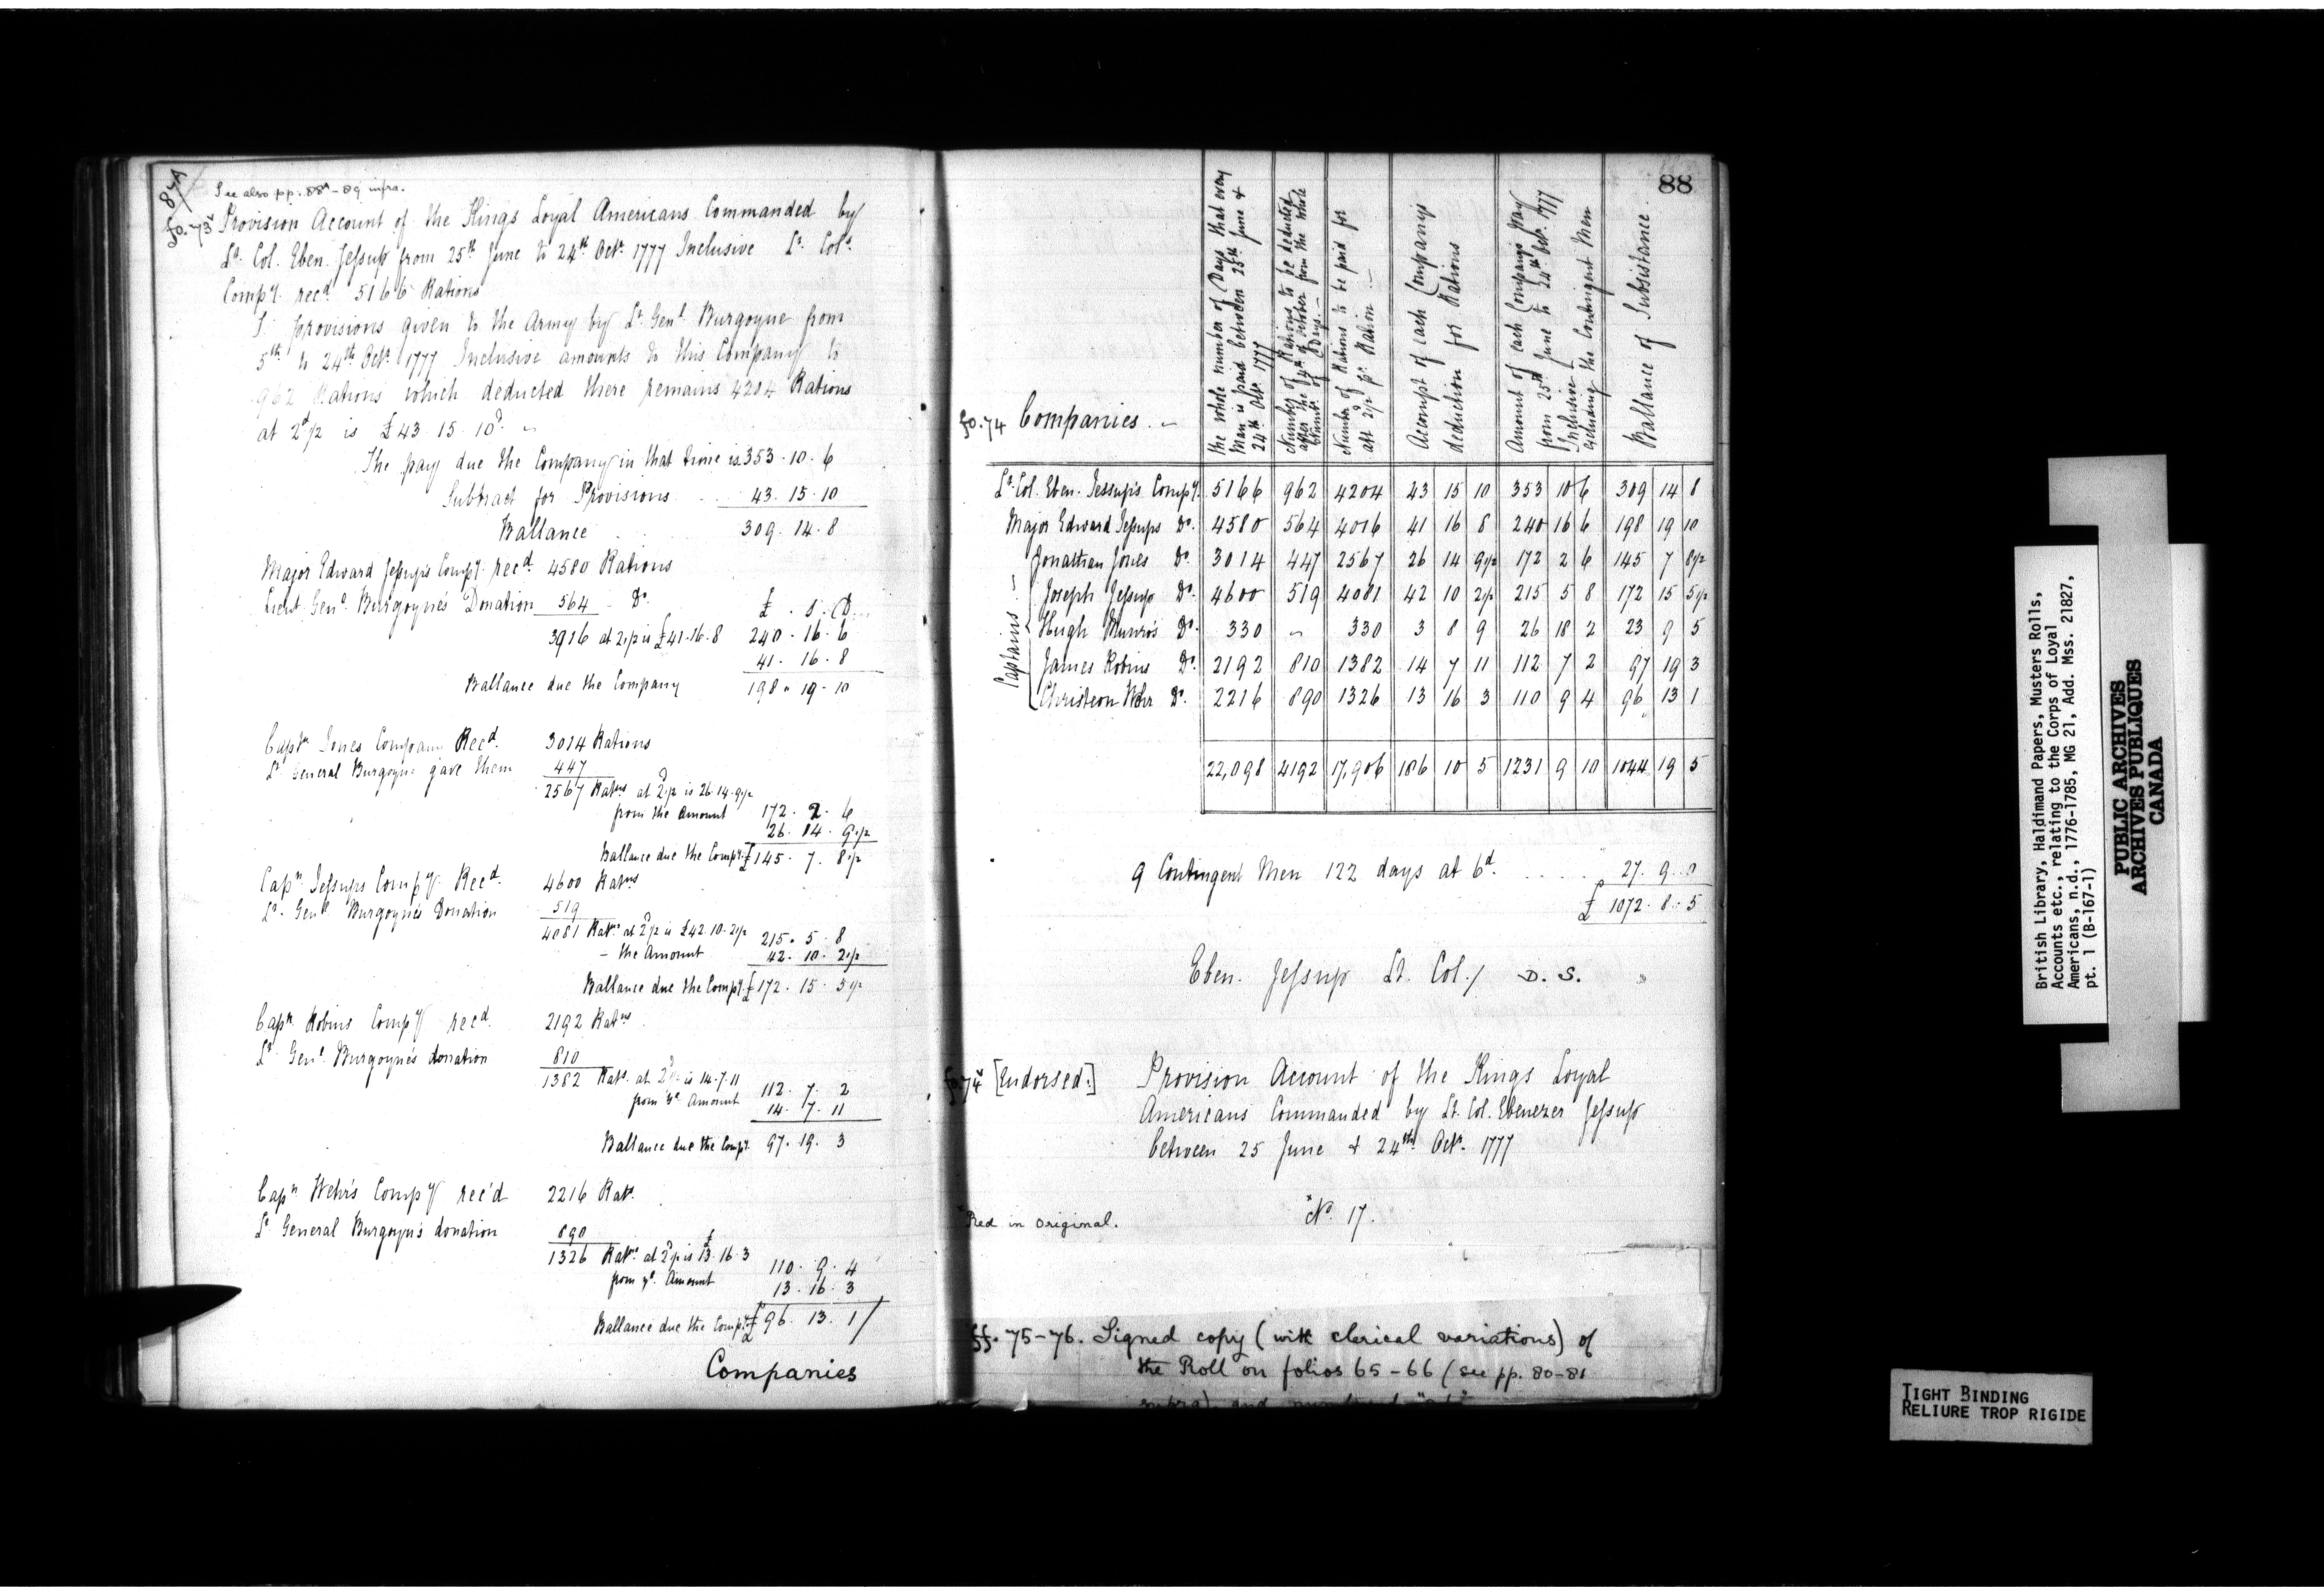 87A
See also pp. 88ᴬ-89 infra.
fo. 73ᵛ Provision Account of the Kings Loyal Americans Commanded by
Lt. Col. Eben. Jessup from 25th June to 24th Octr. 1777 Inclusive Lt. Cols.
Compy. recd. 5166 Rations
provisions given to the Army by Lt. Genl. Burgoyne from
5th to 24th Octr. 1777 Inclusive amounts to this Company to
962 Rations which deducted there remains 4204 Rations
at 2d 1/2 is £43. 15. 10d.
The pay due the Company in that time is 353. 10. 6
Subtract for Provisions 43. 15. 10
Ballance 309. 14. 8
Major Edward Jessups Compy. recd. 4580 Rations
Lieut. Genl. Burgoyne's Donation 564 Do. £ . S . D
3916 at 2 1/2 is £41.16.8 240. 16. 6
41. 16. 8
Ballance due the Company 198. 19. 10
Captn. Jones Company Recd. 3014 Rations
Lt. General Burgoyne gave them 447
2567 Ratns at 2d 1/2 is 26.14.9 1/2
from the Amount 172. 2. 6
26. 14. 9 1/2
Ballance due the Compy. £145. 7. 8 1/2
Capn. Jessups Compy Recd. 4600 Ratns
Lt. Genl. Burgoynes Donation 519
4081 Rats. at 2d 1/2 is £42.10.2 1/2 215. 5. 8
- the Amount 42. 10. 2 1/2
Ballance due the Compy. £172. 15. 5 1/2
Capn. Robins Compy recd. 2192 Ratns
Lt. Genl. Burgoyne's donation 810
1382 Rats. at 2d 1/2 is 14.7.11 112. 7. 2
from ye. Amount 14. 7. 11
Ballance due the Compy. 97. 19. 3
Capn Wehr's Compy rec'd 2216 Rats.
Lt General Burgoyne's donation 890
1326 Rats. at 2d 1/2 is £13.16.3 110. 9. 4
from ye. Amount 13. 16. 3
Ballance due the Compy. £96. 13. 1
Companies
88
fo. 74 Companies.
the whole number of Days that every
Man is paid between 25th June &
24th Octr. 1777
Number of Rations to be deducted
after the 4th of October from the whole
Numbr. of Days.
Number of Rations to be paid for
att 2d 1/2 pr. Ration
Accompt of each Companys
deduction for Rations
Amount of each Companys Pay
from 25th June to 24th Octr. 1777
Inclusive
excluding the Contingent Men
Ballance of Subsistance.
Lt. Col. Eben. Jessup's Compy. 5166 962 4204 43 15 10 353 10 6 309 14 8
Major Edward Jessups Do. 4580 564 4016 41 16 8 240 16 6 198 19 10
Captains
Jonathan Jones Do. 3014 447 2567 26 14 9 1/2 172 2 6 145 7 8 1/2
Joseph Jessup Do. 4600 519 4081 42 10 2 1/2 215 5 8 172 15 5 1/2
Hugh Munro's Do. 330 ~ 330 3 8 9 26 18 2 23 9 5
James Robins Do. 2192 810 1382 14 7 11 112 7 2 97 19 3
Christeon Wehr Do. 2216 890 1326 13 16 3 110 9 4 96 13 1
22,098 4192 17,906 186 10 5 1231 9 10 1044 19 5
9 Contingent Men 122 days at 6d. 27. 9. 0
£ 1072. 8. 5
Eben. Jessup Lt. Col./ D. S.
fo. 74ᵛ [Endorsed:] Provision Account of the Kings Loyal
Americans Commanded by Lt. Col. Ebenezer Jessup
between 25 June & 24th Octr. 1777
*Red in original. *No. 17.
ff. 75-76. Signed copy (with clerical variations) of
the Roll on folios 65-66 (see pp. 80-81
supra) and numbered
British Library, Haldimand Papers, Musters Rolls,
Accounts etc., relating to the Corps of Loyal
Americans, n.d., 1776-1785, MG 21, Add. Mss. 21827,
pt. 1 (B-167-1)
PUBLIC ARCHIVES
ARCHIVES PUBLIQUES
CANADA
TIGHT BINDING
RELIURE TROP RIGIDE